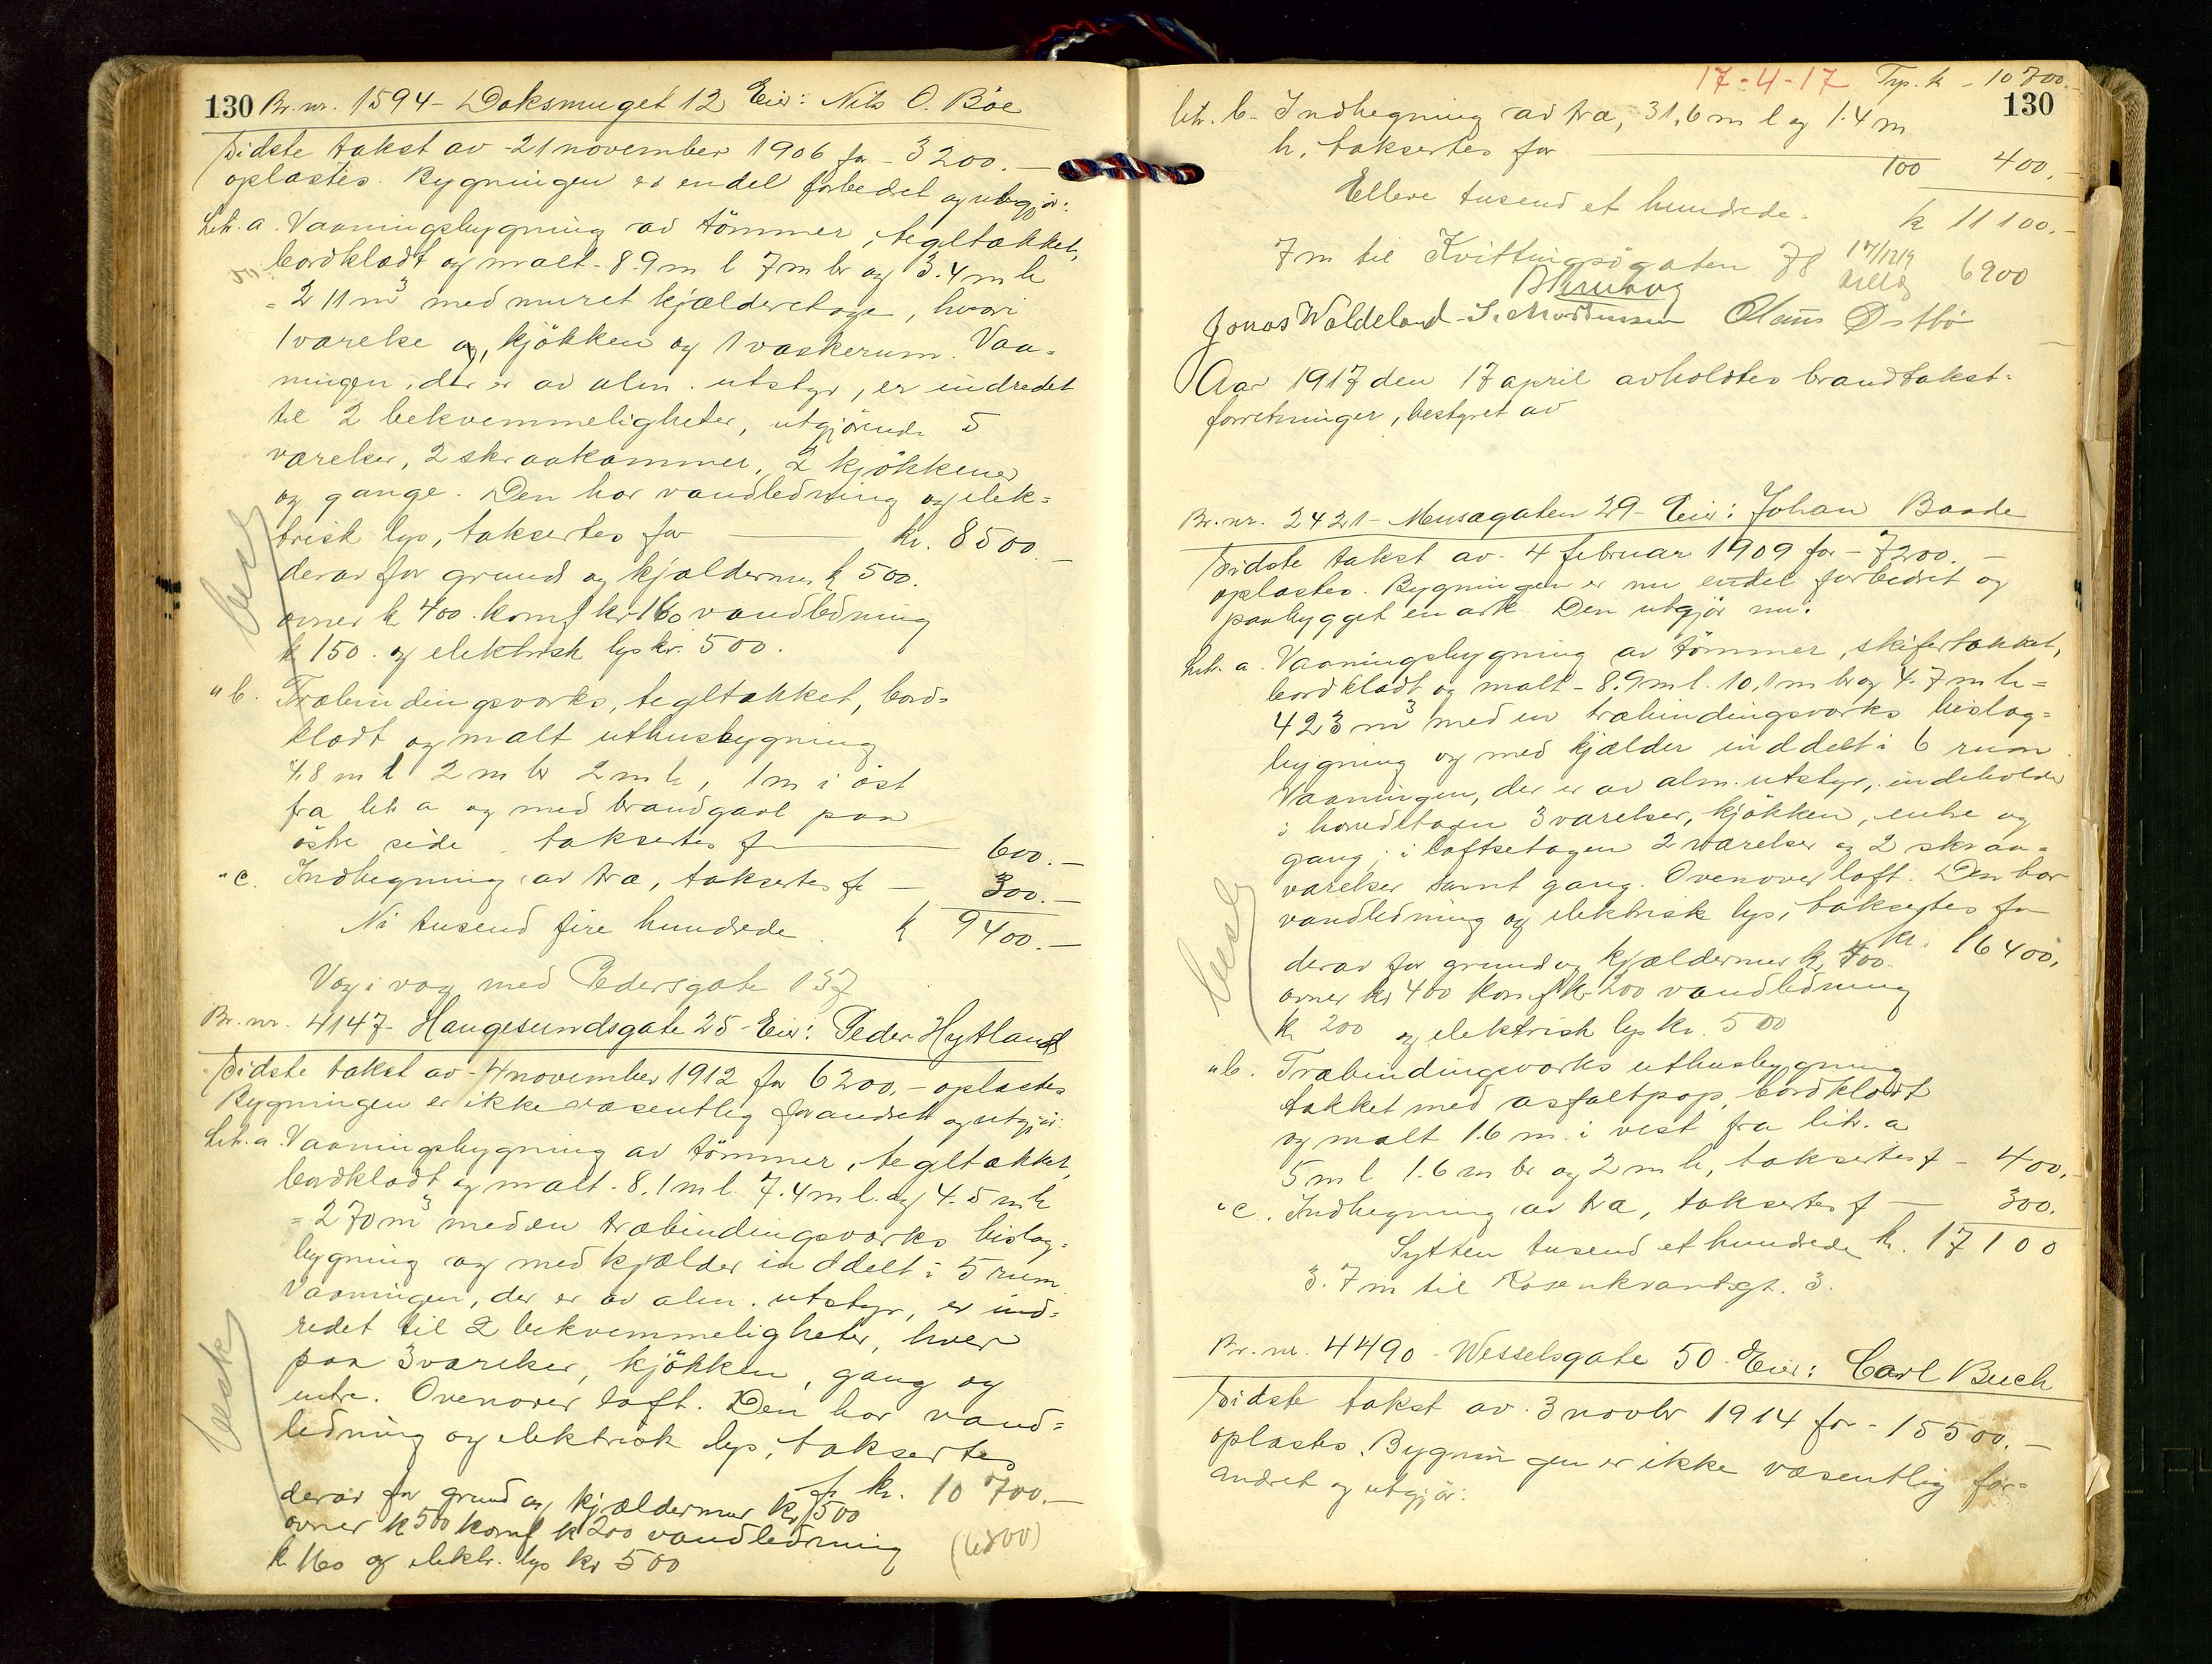 130 Br. nr. 1594 - Doksmuget 12 Eier: Nils O. Böe
Sidste takst av - 21 november 1906 for - 3200.-
oplæstes. Bygningen er endel forbedret og utgjör:
Litr. a. Vaaningsbygning av tömmer, tegltækket,
bordklædt og malt - 8.9 m l 7 m br og 3.4 m h
= 211 m³ med muret kjælderetage, hvori
1 værelse og, kjökken og 1 vaskerum. Vaa-
ningen, der er av alm. utstyr, er indredet
til 2 bekvemmeligheter, utgjörende 5
værelser, 2 skraakammer, 2 kjökkener
og gange. Den har vandledning og elek=
trisk lys, taksertes for kr. 8500.-
derav for grund og kjældermur k 500.
ovner k 400. komf kr 160 vandledning
k 150. og elektrisk lys kr. 500.
besk
" b. Træbindingsværks, tegltækket, bord-
klædt og malt uthusbygning
4.8 m l 2 m br 2 m h, 1 m i öst
fra litr a og med brandgavl paa
östre side. taksertes f 600.-
" c. Indhegning av træ, taksertes for - 300.-
Ni tusend fire hundrede k 9400.-
Væg i væg med Pedersgate 137
Br. nr. 4147 - Haugesundsgate 25 - Eier: Peder Hytland
Sidste takst av - 4 november 1912 for 6200.- oplæstes
Bygningen er ikke væsentlig forandret og utgjör:
Litr. a. Vaaningsbygning av tömmer, tegltækket,
bordklædt og malt - 8.1 m l. 7.4 m l. og 4.5 m h
= 270 m³ med en træbindingsværks bislag=
bygning og med kjælder inddelt i 5 rum
Vaaningen, der er av alm. utstyr, er ind=
redet til 2 bekvemmeligheter, hver
paa 3 værelser, kjökken, gang og
entre. Ovenover loft. Den har vand=
ledning og elektrisk lys, taksertes
for kr. 10 700.-
derav for grund og kjældermur kr 500
ovner k 500 komf k 200 vandledning
k 160 og elektr. lys kr 500
(6800)
besk
17-4-17 Trp. k - 10 700.-
130
litr. b - Indhegning av træ, 31,6 m l og 1.4 m
h, taksertes for 100 400.-
Elleve tusend et hundrede. k 11100.-
7 m til Kvittingsögaten 78 17/12/9 6900
Jonas Woldeland - S. Mortensen Olaus Østbö
Aar 1917 den 17 april avholdtes brandtakst-
forretninger, bestyret av
Br. nr. 2421 - Musagaten 29 - Eier: Johan Baade
Sidste takst av - 4 februar 1909 for - 7200.-
oplæstes. Bygningen er nu endel forbedret og
paabygget en ark. Den utgjör nu:
Litr. a. Vaaningsbygning av tömmer, skifertækket,
bordklædt og malt - 8.9 m l. 10,1 m br og 4.7 m h =
423 m³ med en træbindingsværks bislag=
bygning og med kjælder inddelt i 6 rum.
Vaaningen, der er av alm. utstyr, indeholder
i hovedetagen 3 værelser, kjökken, entre og
gang, i loftsetagen 2 værelser og 2 skraa-
værelser samt gang. Ovenover loft. Den har
vandledning og elektrisk lys, taksertes for
kr. 16400.
derav for grund og kjældermur k 700.
ovner kr 400 komf k 200 vandledning
k 200 og elektrisk lys kr. 500
besk
" b. Træbindingsværks uthusbygning
tækket med asfaltpap, bordklædt
og malt 1.6 m i vest fra litr. a
5 m l 1.6 m br og 2 m h, taksertes f - 400.-
" c. Indhegning av træ, taksertes f - 300.
Sytten tusend et hundrede k. 17100
3.7 m til Rosenkrantzgt. 3.
Br. nr. 4490 - Wesselsgate 50 - Eier: Carl Buch
Sidste takst av - 3 novbr 1914 for - 15500.-
oplæstes. Bygningen er ikke væsentlig for-
andret og utgjör: